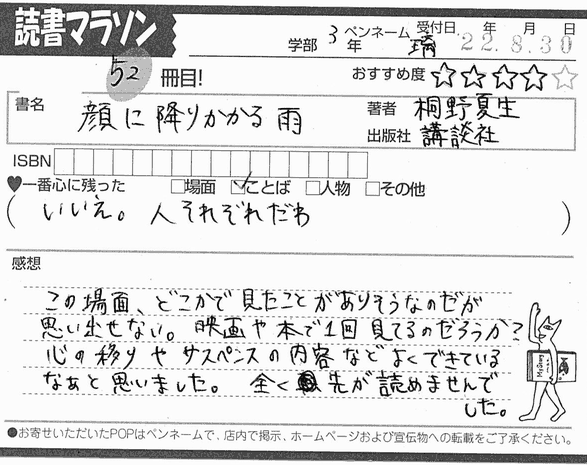 読書マラソン
学部 3年 ペンネーム 璃 受付日 年 月 日 22.8.30
52 冊目!
おすすめ度 ☆☆☆☆☆
書名 顔に降りかかる雨
著者 桐野夏生
出版社 講談社
ISBN
♥一番心に残った □場面 ☑ことば □人物 □その他
( いいえ。人それぞれだわ )
感想
この場面、どこかで見たことがありそうなのだが
思い出せない。映画や本で1回見てるのだろうか?
心の移りやサスペンスの内容などよくできている
なぁと思いました。全く先が読めませんで
した。
●お寄せいただいたPOPはペンネームで、店内で掲示、ホームページおよび宣伝物への転載をご了承ください。